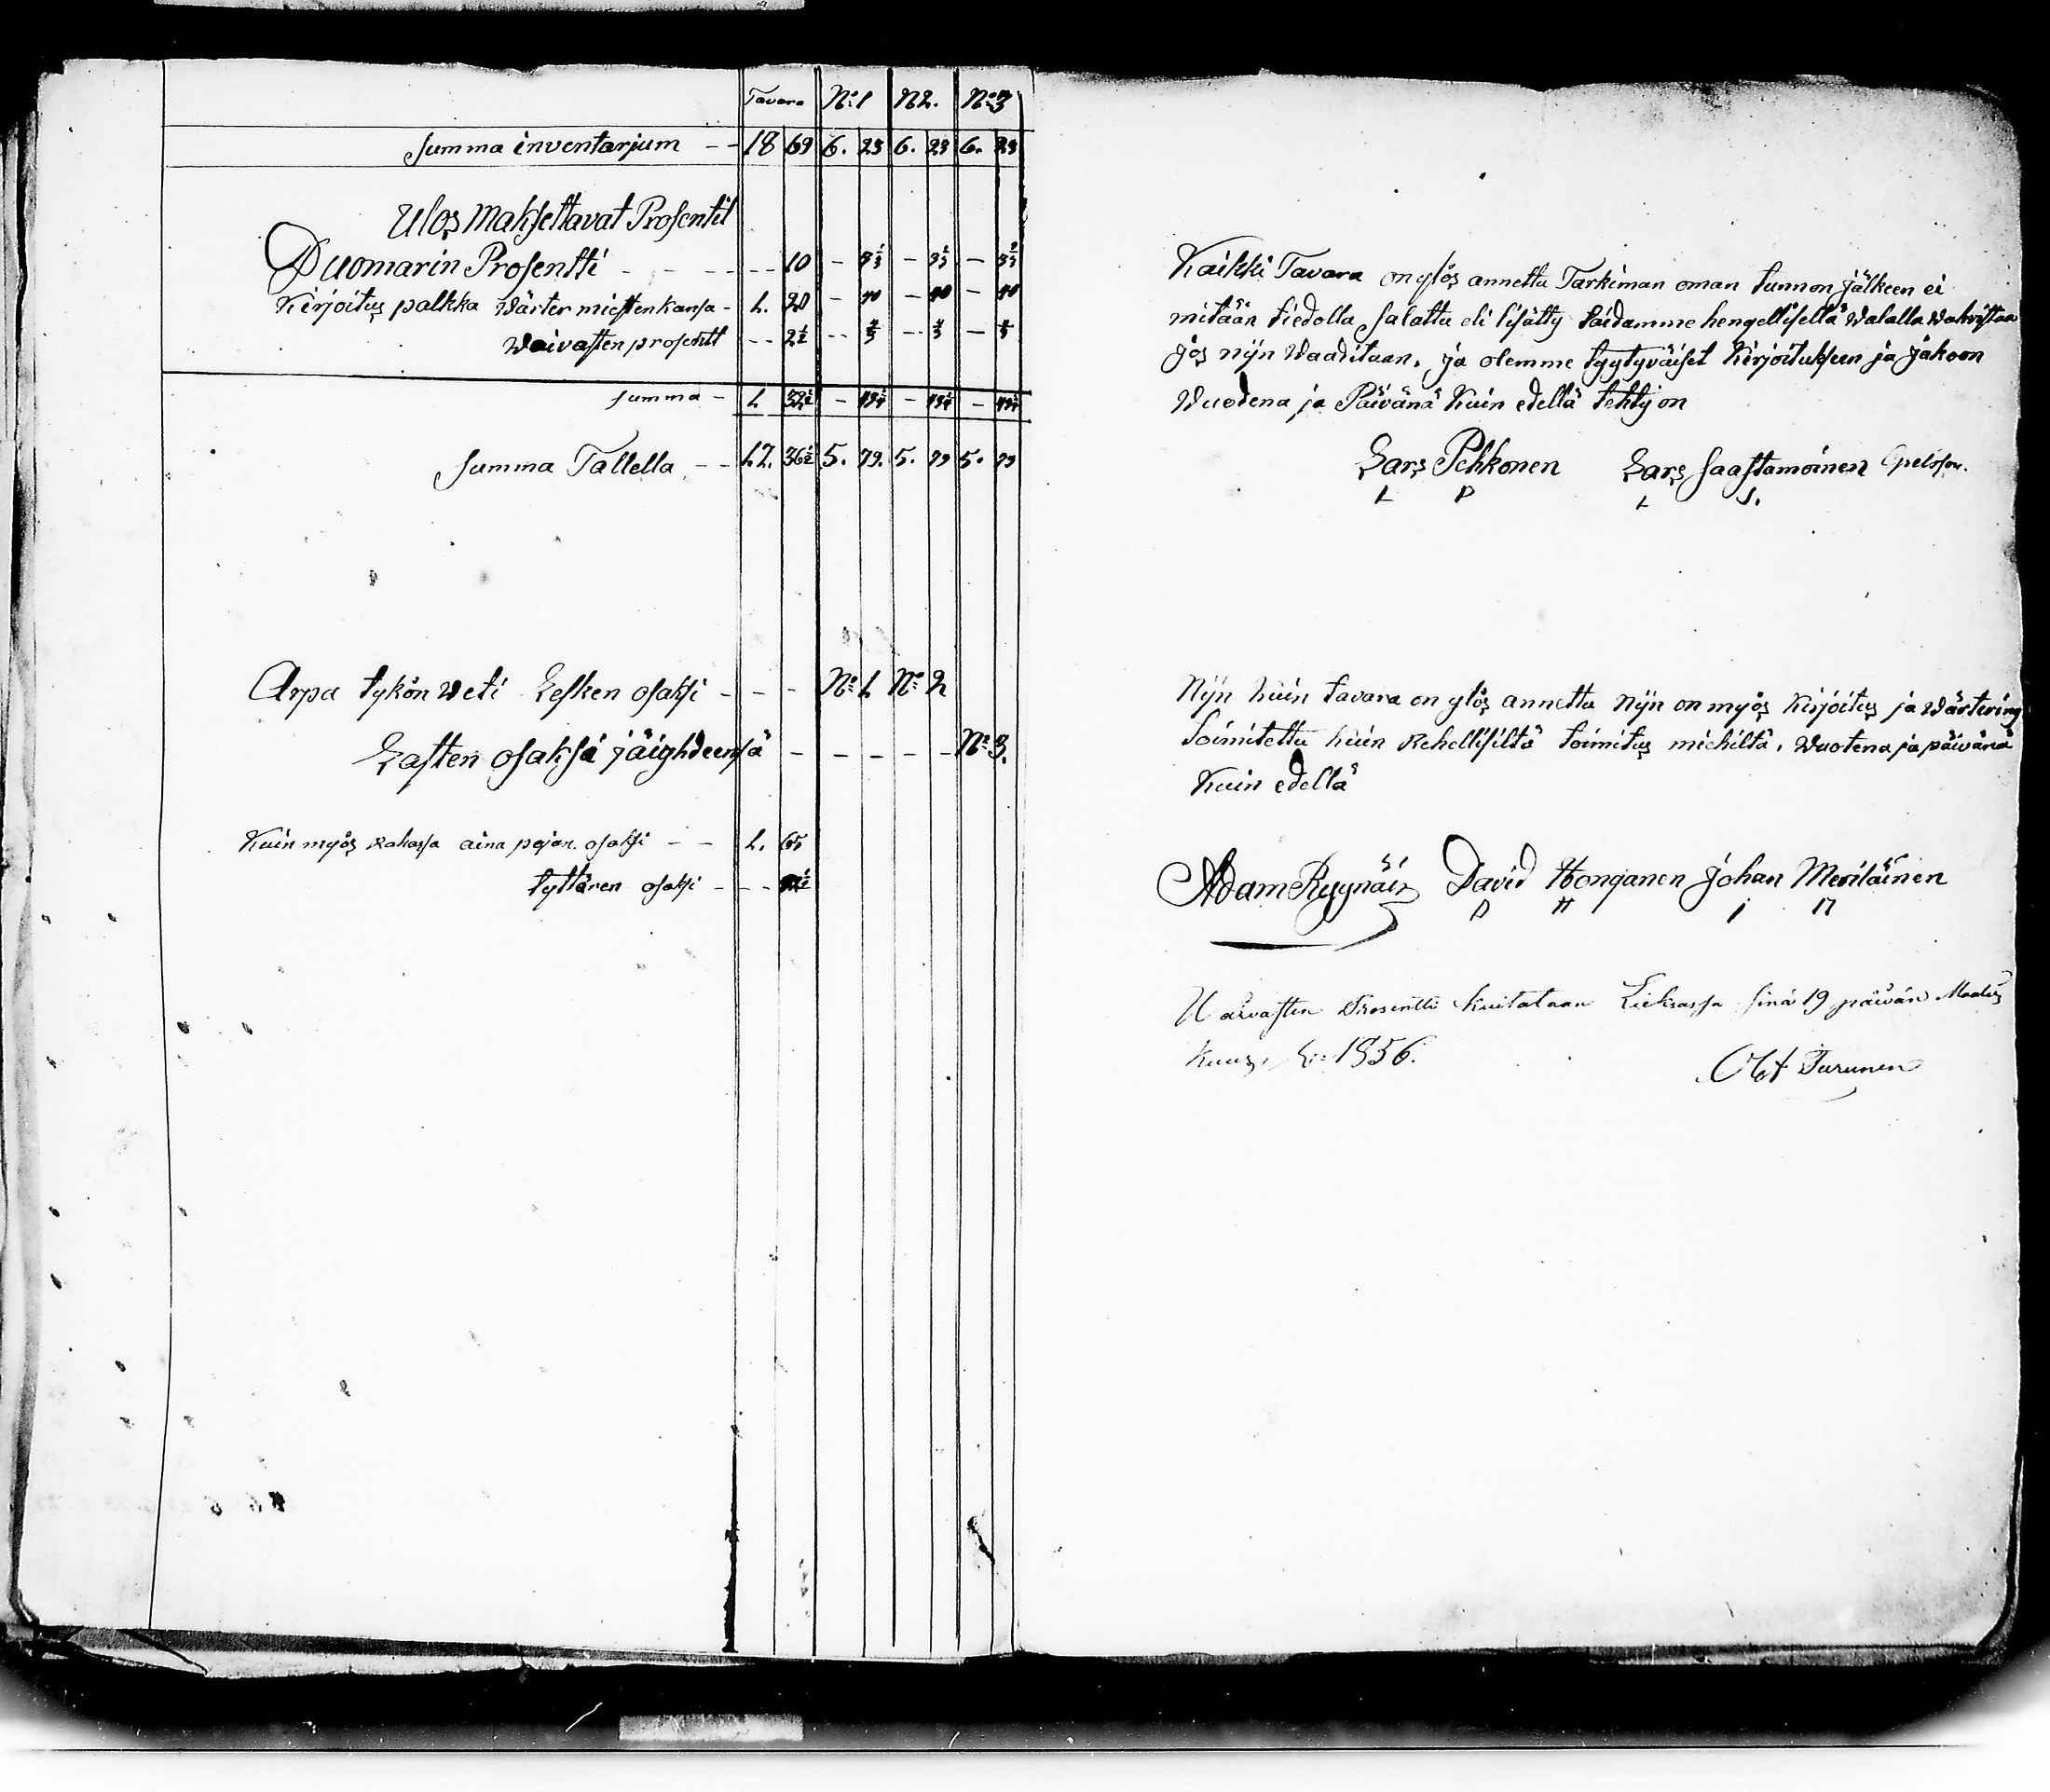 Tavara No:1 N2. No:3
Summa inventarjum - - 18 69 6. 23 6. 23 6. 23
Ulos Makseltavat Prosentit
Duomarin Prosentti - - - - - 10 - 3 1/3 - 3 1/3 - 3 1/3
Kirjoitus palkka Wärter miesten kansa - 1. 20 - 40 - 40 - 40
Waivasten prosentti - - 2 1/2 - - 4/5 - - 4/5 - 4/5
Summa - 1 32 1/2 - -
Summa Tallella - - 17. 36 1/2 5. 79. 5. 79 5. 79
Arpa tykön Weti Lesken osaksi - - - No: 1 No: 2
Lasten osaksi jäighdeensä - - - - - - No: 3.
Kuin myös rahassa aina pojan osaksi - - 1. 65
tyttären osaksi - - -
Kaikki Tavara on ylös annettu Tarkiman oman tunnon jälkeen ei
mitään tiedolla salattu eli lisätty taidamme hengellisellä Walalla Wahvistaa
jos nijn Waaditaan. ja olemme tyytyväiset Kirjoitukseen ja jakoon
Wuodena ja Päivänä Kuin edellä tehty on
Lars Pehkonen Lars Saastamoinen
L P L S.
Nijn kuin tavara on ylös annettu nijn on myös Kirjoitus ja Wärtering
toimitettu kuin Rehellisiltä toimitus miehiltä. Wuotena ja päivänä
Kuin edellä
Adam Ryynäin David Honganen Johan Meriläinen
D H J M
Waivasten Prosentti kuitataan Lieksassa sinä 19 päivän Maalis
Kuus. 1856.
Olof Turunen